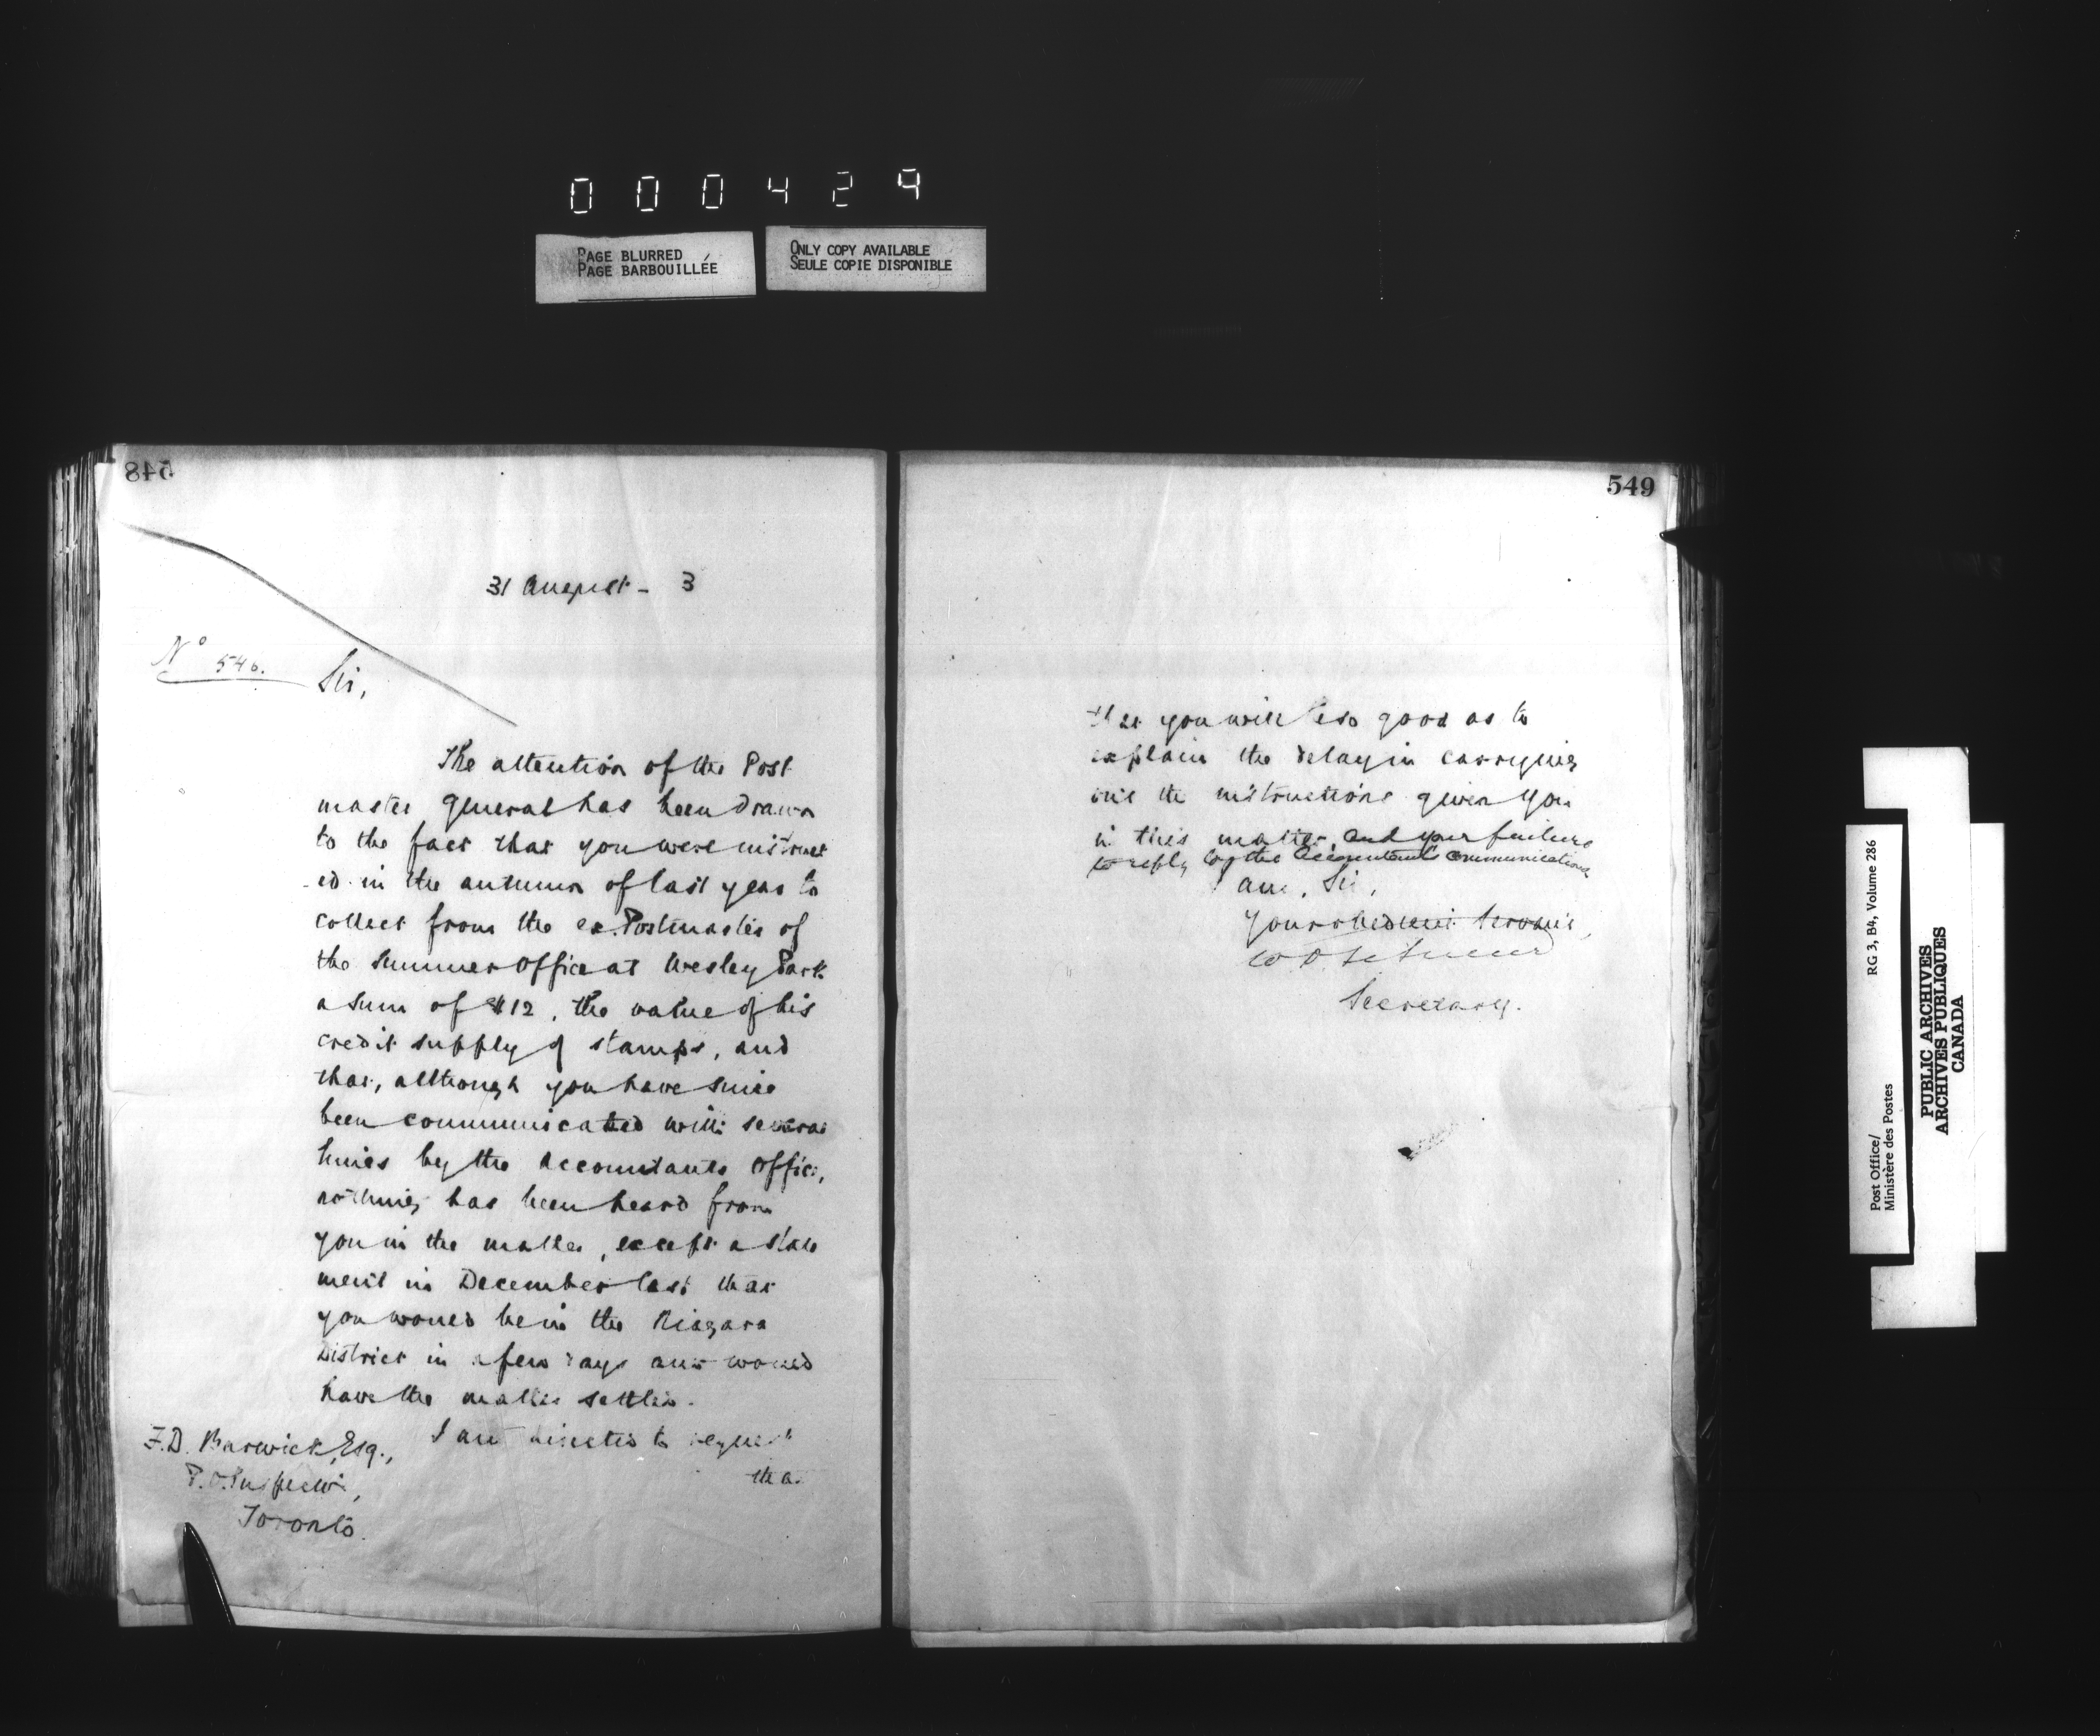 000429
PAGE BLURRED
PAGE BARBOUILLÉE
ONLY COPY AVAILABLE
SEULE COPIE DISPONIBLE
548
31 August - 3
No 546.
Sir,
The attention of the Post
master General has been drawn
to the fact that you were instruct
-ed in the autumn of last year to
collect from the ex. Postmaster of
the Summer Office at Wesley Park
a sum of $12, the value of his
credit supply of stamps, and
that, although you have since
been communicated with several
times by the Accountants Office,
nothing has been heard from
you in the matter, except a state
ment in December last that
you would be in the Niagara
District in a few days and would
have the matter settled.
I am directed to request
tha
F.D. Barwick, Esq.,
P.O. Inspector,
Toronto.
549
that you will be so good as to
explain the delay in carrying
out the instructions given you
in this matter, and your failure
to reply to the Accountant's communications
I am, Sir,
Your obedient Servant,
Secretary.
Post Office/
Ministère des Postes
RG 3, B4, Volume 286
PUBLIC ARCHIVES
ARCHIVES PUBLIQUES
CANADA